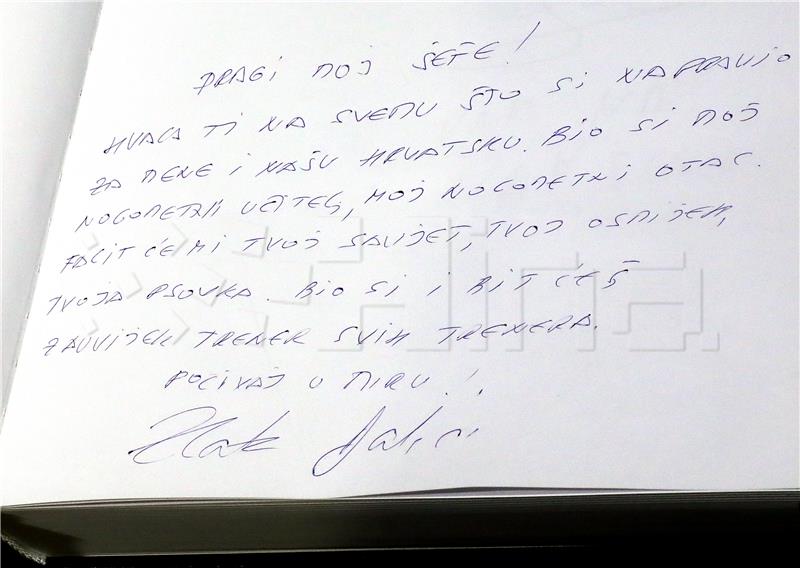 DRAGI MOJ ŠEFE!
HVALA TI NA SVEMU ŠTO SI NAPRAVIO
ZA MENE I NAŠU HRVATSKU. BIO SI MOJ
NOGOMETNI UČITELJ, MOJ NOGOMETNI OTAC.
FALIT ĆE MI TVOJ SAVJET, TVOJ OSMIJEH,
TVOJA PSOVKA. BIO SI I BIT ĆEŠ
ZAUVIJEK TRENER SVIH TRENERA.
POČIVAJ U MIRU!
Zlatko Dalić
Hina